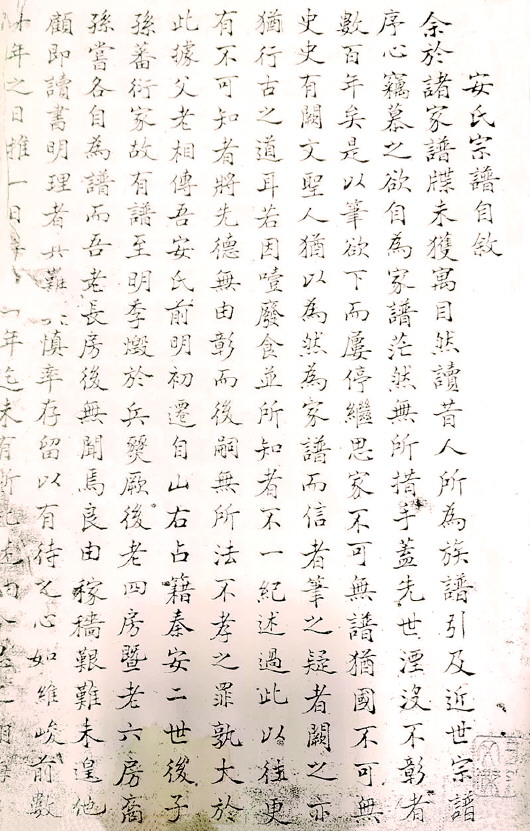 安氏宗譜自敘
余於諸家譜牒未獲寓目然讀昔人所為族譜引及近世宗譜
序心竊慕之欲自為家譜茫然無所措手蓋先世湮没不彰者
數百年矣是以筆欲下而屢停繼思家不可無譜猶國不可無
史史有闕文聖人猶以為然為家譜而信者筆之疑者闕之亦
猶行古之道耳若因噎廢食並所知者不一紀述過此以往更
有不可知者將先德無由彰而後嗣無所法不孝之罪孰大於
此據父老相傳吾安氏前明初遷自山右占籍秦安二世後子
孫蕃衍家故有譜至明季燬於兵燹厥後老四房暨老六房裔
孫嘗各自為譜而吾老長房後無聞焉良由稼穡艱難未遑他
顧即讀書明理者難慎率存留以有待之心如維峻前數
年之日推一日年迄未有所